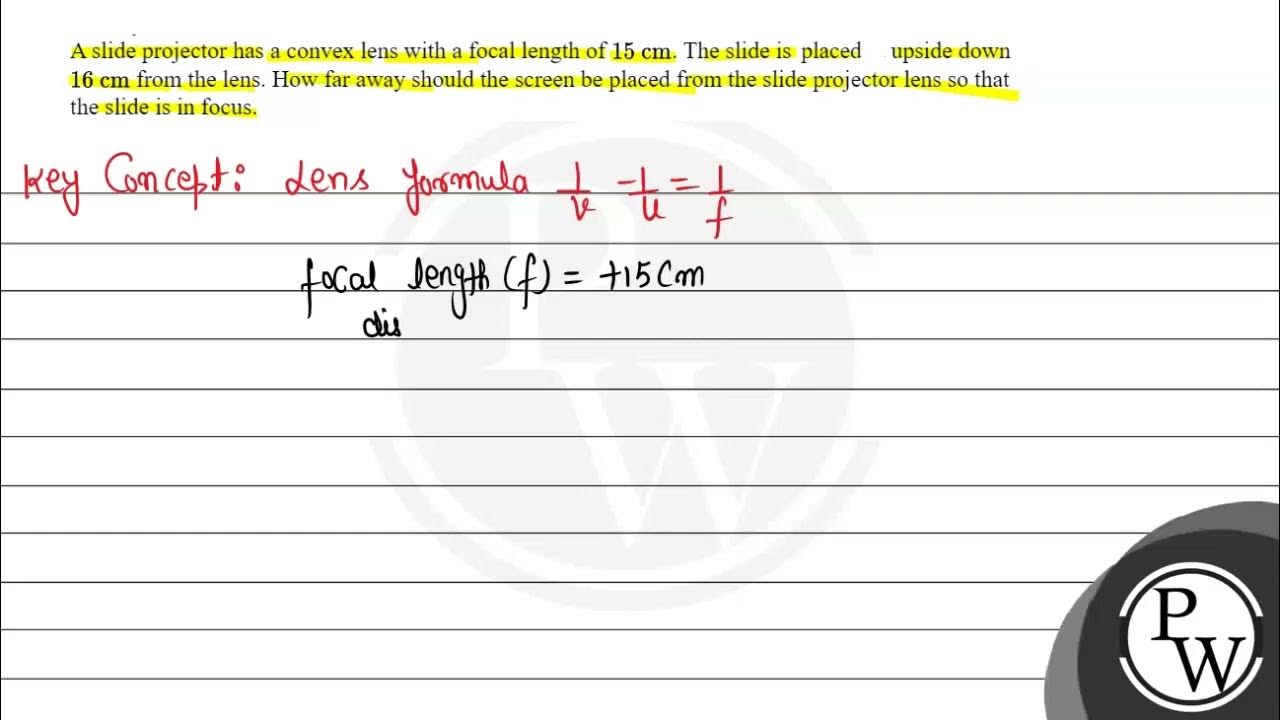 A slide projector has a convex lens with a focal length of 15 cm. The slide is placed upside down
16 cm from the lens. How far away should the screen be placed from the slide projector lens so that
the slide is in focus.
Key Concept: Lens formula 1/v - 1/u = 1/f
focal length (f) = +15 cm
dis
PW
P
W